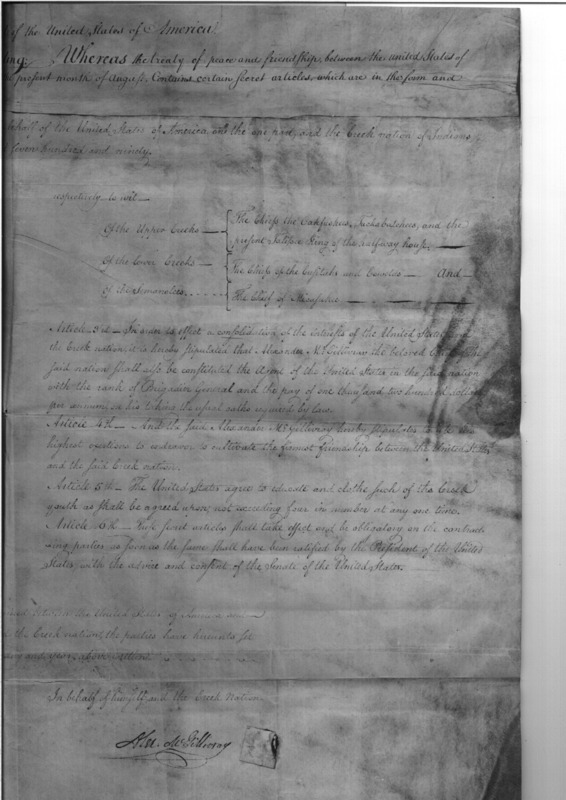 of the United States of America
ing: Whereas the treaty of peace and friendship, between the united States of
present month of August, Contains certain secret articles, which are in the form and
behalf of the United States of America, on the one part, and the Creek nation of Indians
seven hundred and ninety.
respectively to wit—
Of the Upper Creeks — The Chiefs the Oakfuskees, Tuckabatchees, and the
present Talissee King of the halfway house.
Of the lower Creeks — The Chiefs of the Cusitahs and Cowetas — And —
Of the Semanolees. The Chief of Micasukee
Article 3d — In order to effect a consolidation of the interests of the United States
the Creek nation, it is hereby stipulated that Alexander McGillivray the beloved
said nation shall also be constituted the Agent of the United States in the said nation
with the rank of Brigadier General and the pay of one thousand two hundred dollars
per annum, on his taking the usual oaths required by law.
Article 4th — And the said Alexander McGillivray hereby stipulates to use
highest exertions to endeavor to cultivate the firmest friendship between the United States
and the said Creek nation.
Article 5th — The United States agree to educate and clothe such of the Creek
youth as shall be agreed upon, not exceeding four in number at any one time.
Article 6th — These secret articles shall take effect and be obligatory on the contract-
ing parties as soon as the same shall have been ratified by the President of the United
States, with the advice and consent of the Senate of the United States.
between the United States of America and
the Creek nation, the parties have hereunto set
and year above written
In behalf of himself and the Creek Nation.
Alex. McGillivray